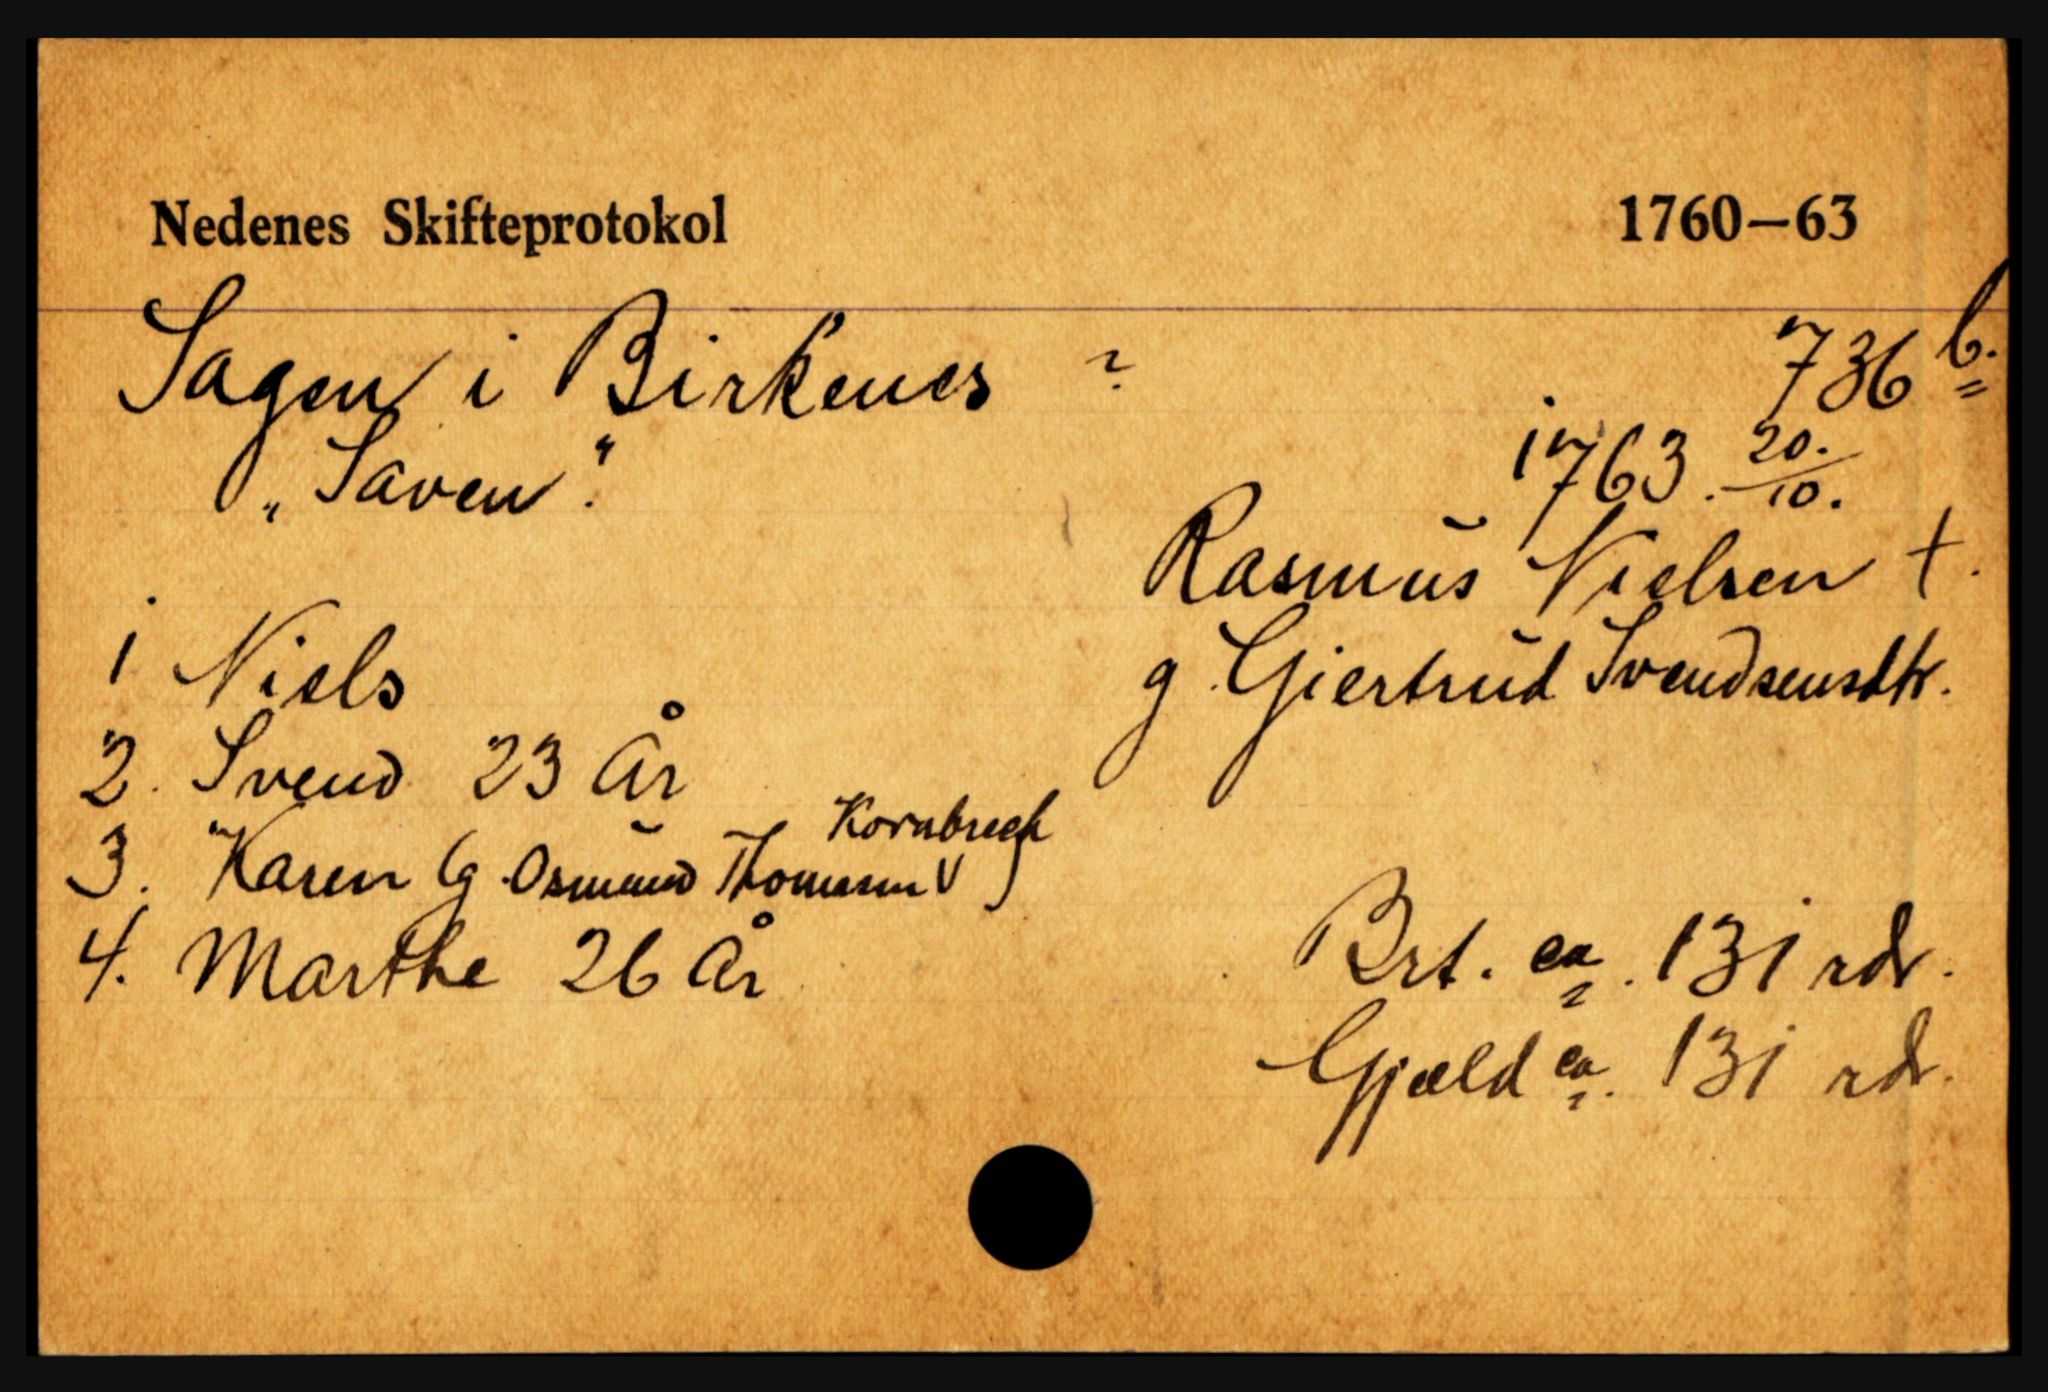 Nedenes Skifteprotokol 1760—63
Sagen i Birkenes ? 736 b.
„Saven".
1763. 20./10.
Rasmus Nielsen †.
g. Giertrud Svendsensdtr.
1 Niels
2. Svend 23 År
3. Karen (g. Osmund Thomesen
4. Marthe 26 År
Brt. ca. 131 rdr.
Gjæld ca. 131 rdr.